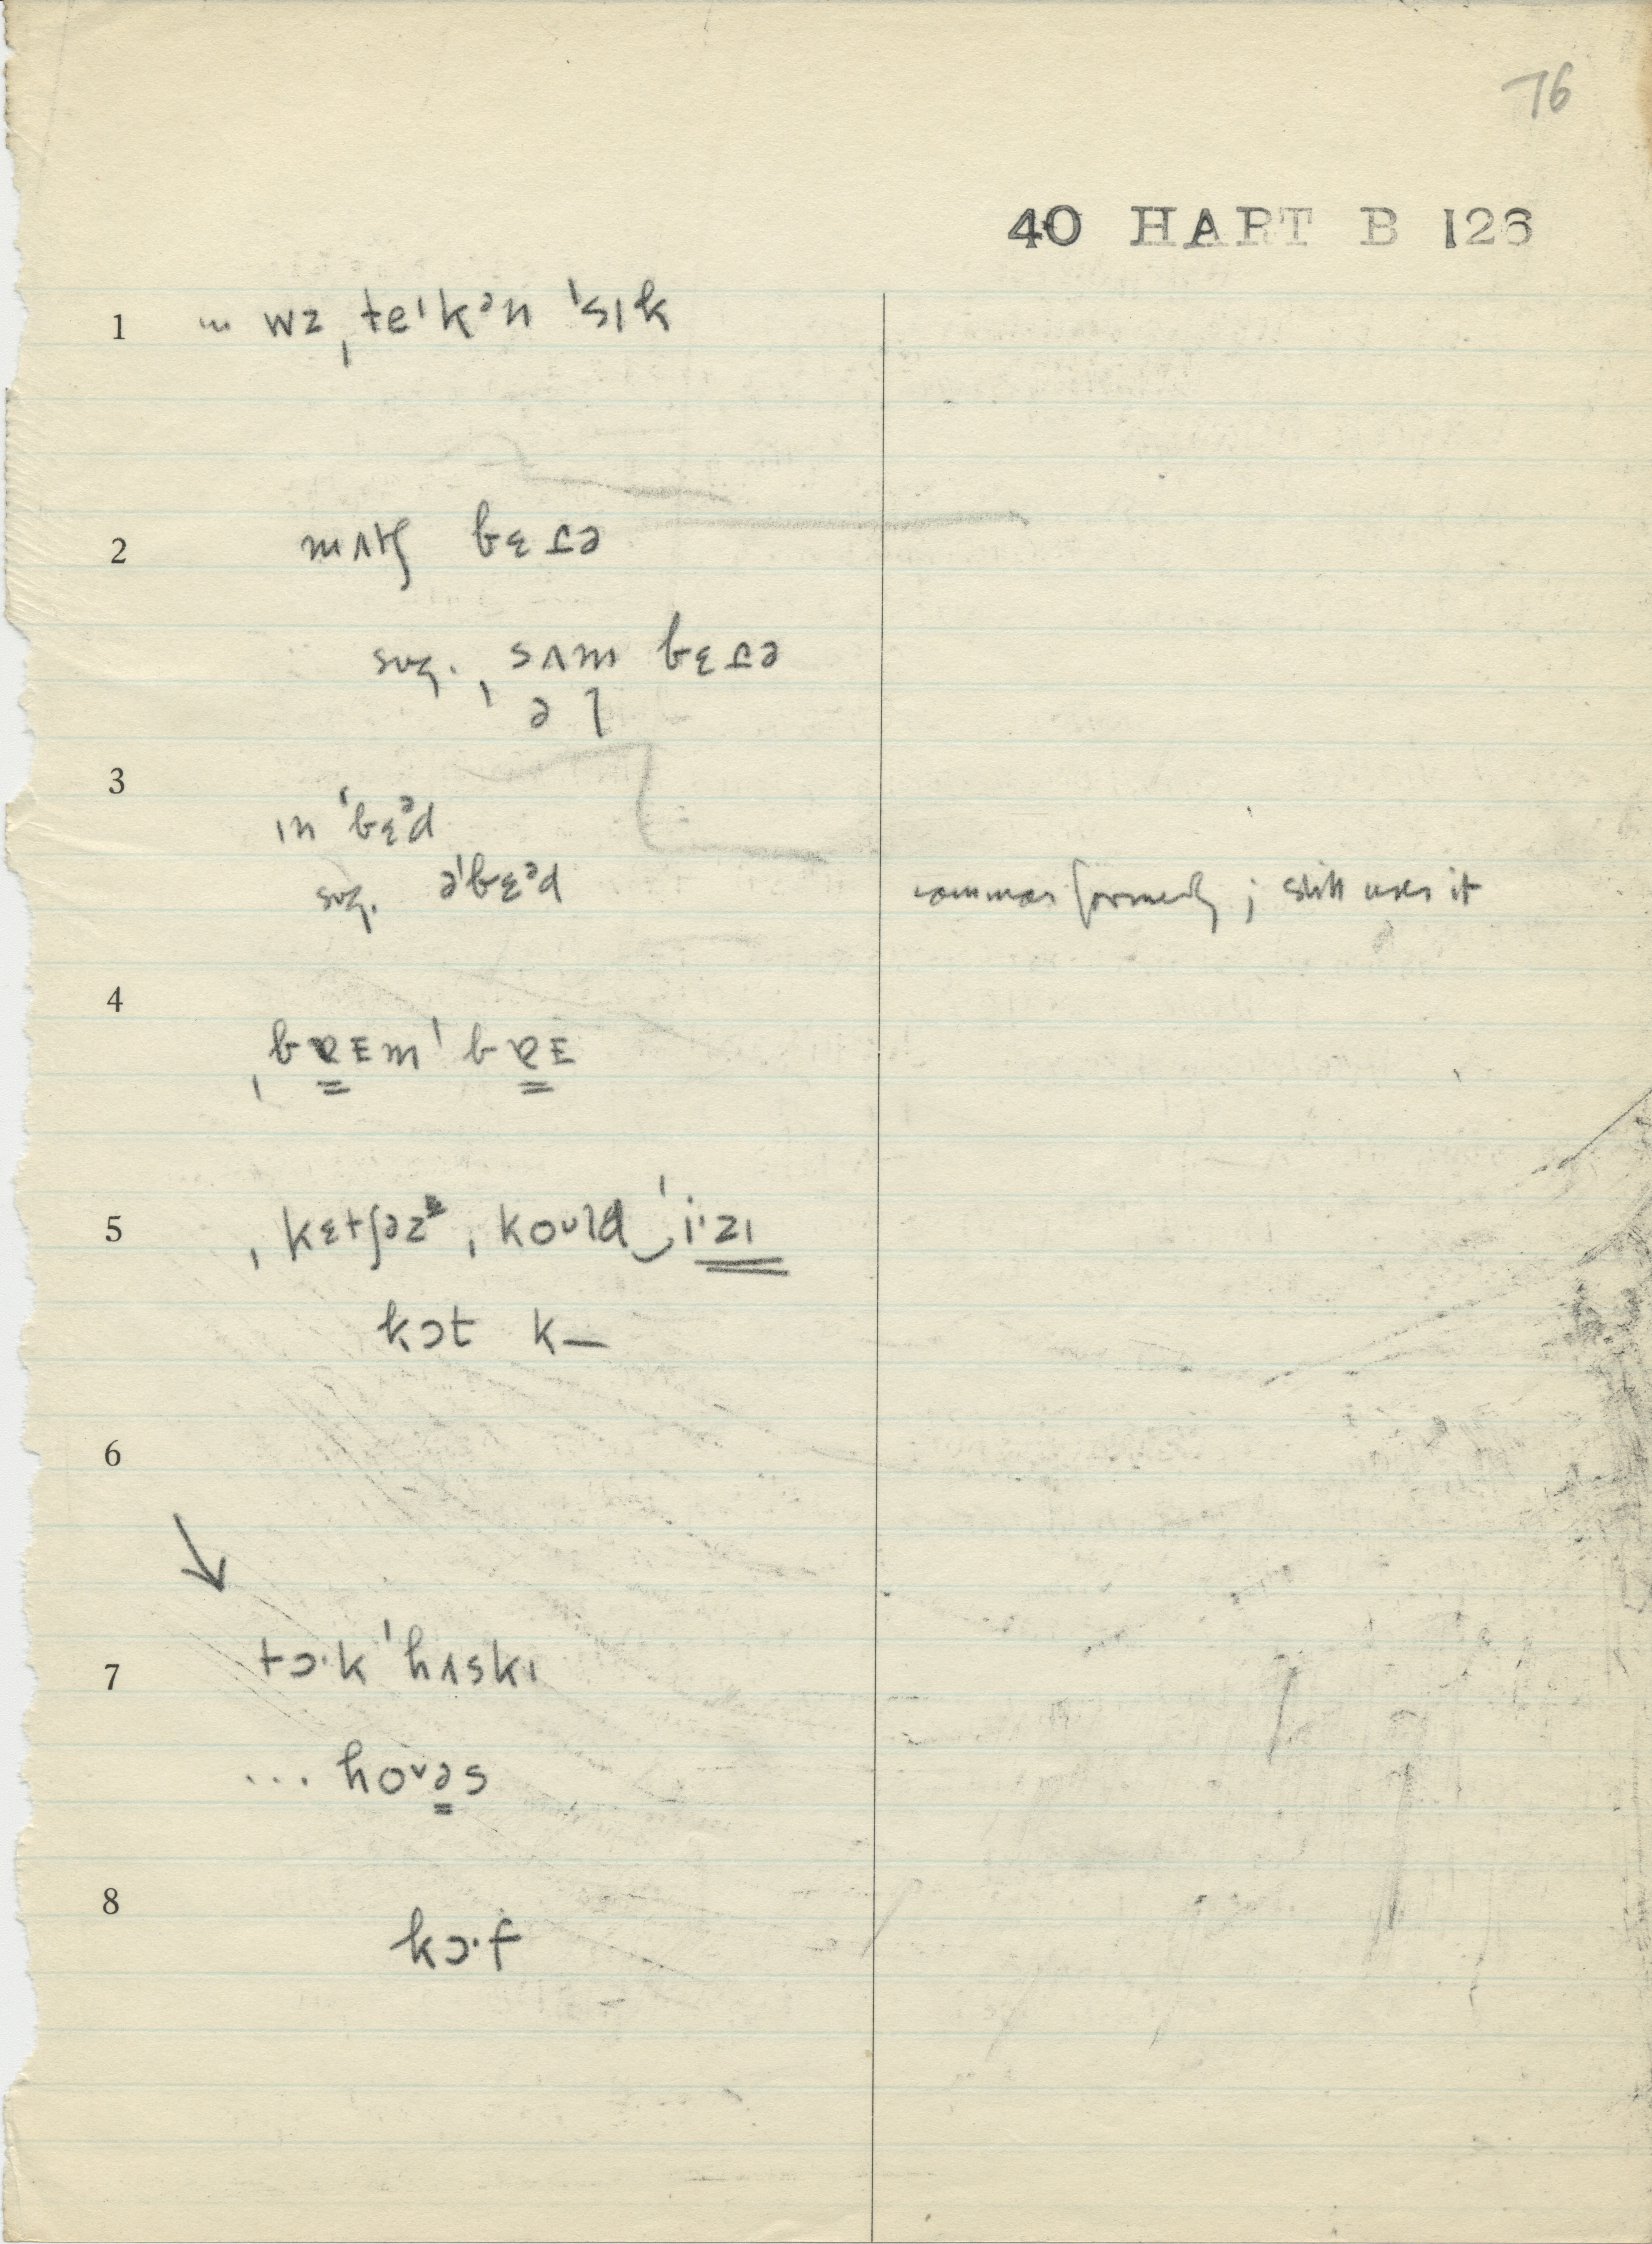 76
40 HART B 126
1 ... wz ˌteˈkᵊn ˈsɪk
2 mʌtʃ bɛɾə
sug. ˌsʌm bɛɾə
ə l
3 ɪn ˈbɛᵊd
sug. əˈbɛᵊd common formerly; still uses it
4 ˌbɐEmˈbɐE
5 ˌkɛtʃəz ˌkoʊld‿ˈiˑzɪ
kɔt k—
6
7 tɔˑk ˈhʌskɪ
... hoᵛəs
8 kɔˑf